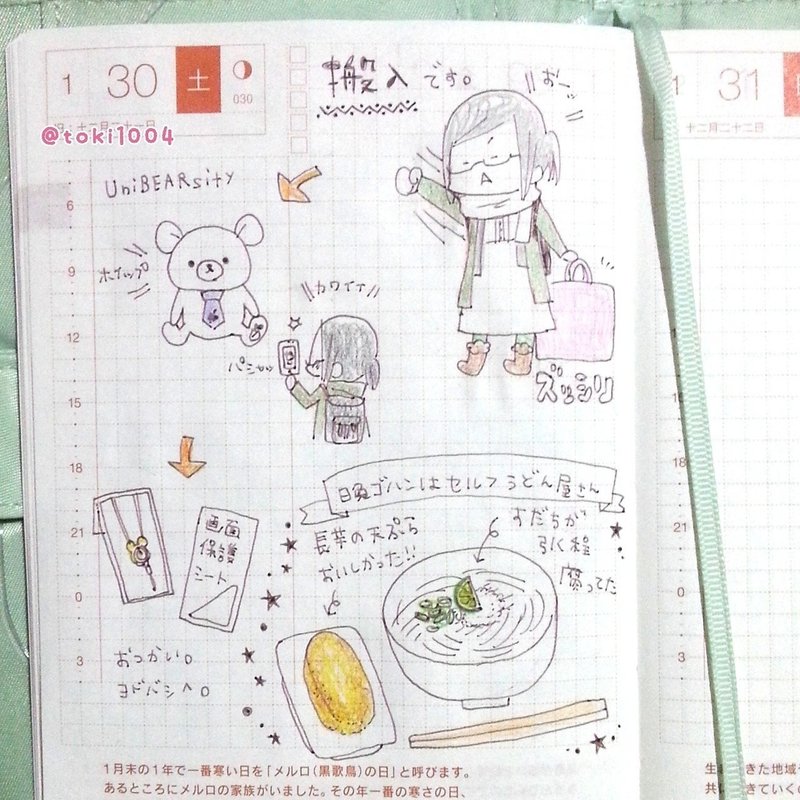 1 30 土
030
祝：十二月二十一日
@toki1004
搬入です。
おーッ
UniBEARsity
ホイップ
カワイイ
パシャッ
ズッシリ
6
9
12
15
18
21
0
3
画面
保護
シート
おつかい。
ヨドバシへ。
昼ゴハンはセルフうどん屋さん
長芋の天ぷら
おいしかった!!
すだちが
引く程
腐ってた
1月末の1年で一番寒い日を「メルロ（黒歌鳥）の日」と呼びます。
あるところにメルロの家族がいました。その年一番の寒さの日、
1 31
十二月二十二日
6
9
12
15
18
21
0
3